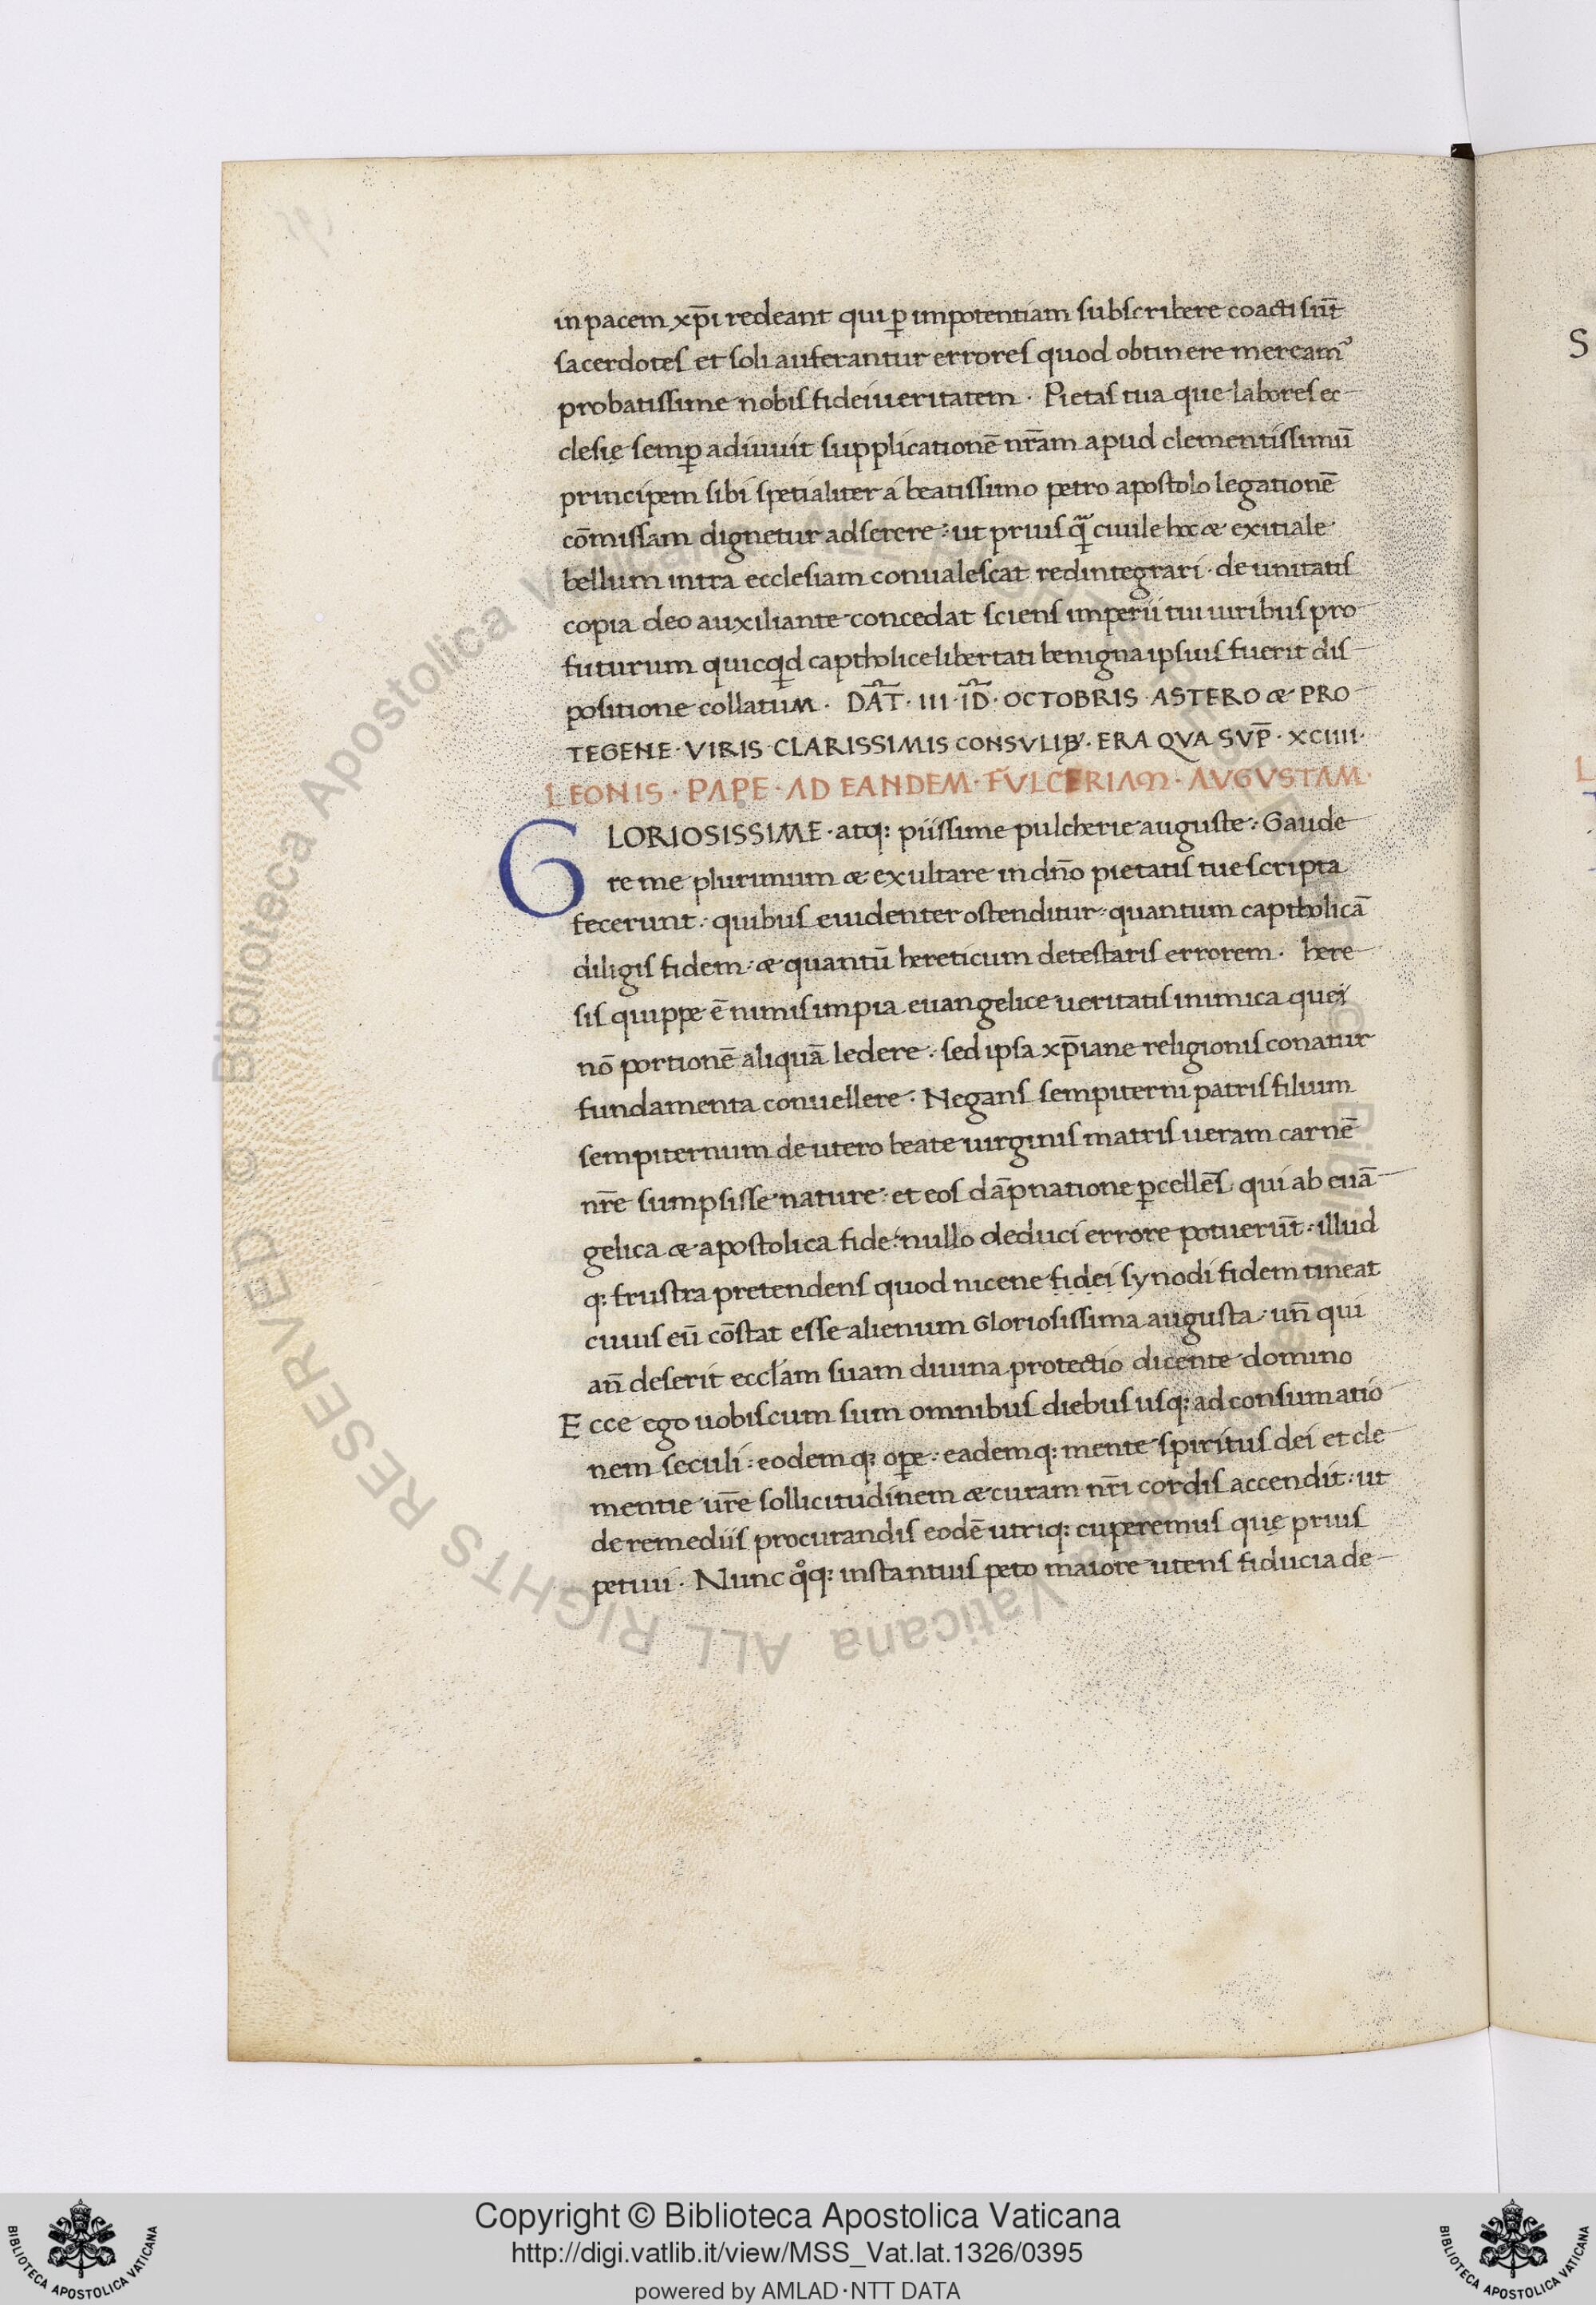 in pacem xp̄i redeant qui ꝑ impotentiam subscribere coacti sūt
sacerdotes et soli auferantur errores quod obtinere mereamꝰ
probatissime nobis fidei ueritatem · Pietas tua que labores ec-
clesię semꝑ adiuuit supplicationē nr̄am apud clementissimū
principem sibi spetialiter a beatissimo petro apostolo legationē
cōmissam dignetur adserere : ut prius qͣ̄ ciuile hoc & exitiale
bellum intra ecclesiam conualescat redintegrari · de unitatis
copia deo auxiliante concedat sciens imperii tui uiribus pro-
futurum quicqͥd captholice libertati benigna ipsius fuerit dis-
positione collatum · DAT̄ · III · ID̄ · OCTOBRIS · ASTERO & PRO-
TEGENE · VIRIS CLARISSIMIS CONSVLIB; · ERA QVA SVP̄ · XCIIII ·
LEONIS · PAPE · AD EANDEM · FULCERIAM · AVGVSTAM ·
GLORIOSISSIME · atq; piissime pulcherie auguste : Gaude
re me plurimum & exultare in dn̄o pietatis tue scripta
fecerunt : quibus euidenter ostenditur : quantum captholicā
diligis fidem : & quantū hereticum detestaris errorem · here-
sis quippe ē nimis impia euangelice ueritatis inimica quei
nō portionē aliquā ledere : sed ipsa xp̄iane religionis conatur
fundamenta conuellere · Negans sempiterni patris filium
sempiternum de utero beate uirginis matris ueram carnē
nr̄e sumpsisse nature : et eos dāpnatione ꝑcellēs qui ab euā-
gelica & apostolica fide : nullo deduci errore potuerūt : illud
q; frustra pretendens quod nicene fidei synodi fidem tineat
cuius eū cōstat esse alienum Gloriosissima augusta : un̄ qui
an̄ deserit eccl̄am suam diuina protectio dicente domino
Ecce ego uobiscum sum omnibus diebus usq; ad consumatio
nem seculi : eodem q; ope : eadem q; mente spiritus dei et cle
mentie ur̄e sollicitudinem & curam nr̄i cordis accendit : ut
de remediis procurandis eodē utriq; cuperemus quę prius
petiui · Nunc qͦq; instantius peto maiore utens fiducia de-
S
L
© Biblioteca Apostolica Vaticana ALL RIGHTS RESERVED
Copyright © Biblioteca Apostolica Vaticana
http://digi.vatlib.it/view/MSS_Vat.lat.1326/0395
powered by AMLAD·NTT DATA
BIBLIOTECA APOSTOLICA VATICANA
BIBLIOTECA APOSTOLICA VATICANA